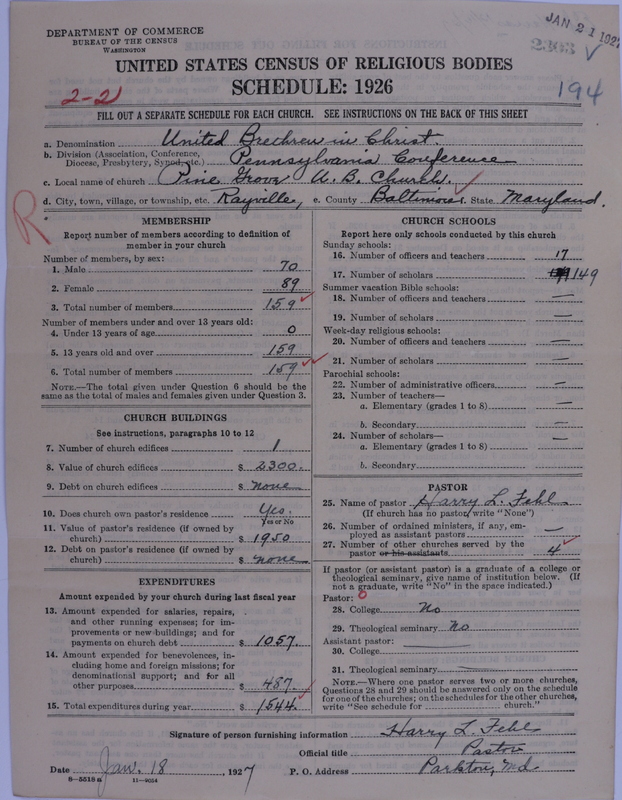 DEPARTMENT OF COMMERCE
BUREAU OF THE CENSUS
WASHINGTON
JAN 21 1927
2303
194
UNITED STATES CENSUS OF RELIGIOUS BODIES
SCHEDULE: 1926
2-2
FILL OUT A SEPARATE SCHEDULE FOR EACH CHURCH. SEE INSTRUCTIONS ON THE BACK OF THIS SHEET
a. Denomination United Brethren in Christ.
b. Division (Association, Conference, Diocese, Presbytery, Synod, etc.) Pennsylvania Conference
c. Local name of church Pine Grove U. B. Church.
d. City, town, village, or township, etc. Rayville, e. County Baltimore f. State Maryland.
R
MEMBERSHIP
Report number of members according to definition of
member in your church
Number of members, by sex:
1. Male 70
2. Female 89
3. Total number of members 159
Number of members under and over 13 years old:
4. Under 13 years of age 0
5. 13 years old and over 159
6. Total number of members 159
NOTE.—The total given under Question 6 should be
same as the total of males and females given under Question 3.
CHURCH BUILDINGS
See instructions, paragraphs 10 to 12
7. Number of church edifices 1
8. Value of church edifices $ 2300.
9. Debt on church edifices $ none
10. Does church own pastor's residence Yes.
Yes or No
11. Value of pastor's residence (if owned by
church) $ 1950
12. Debt on pastor's residence (if owned by
church) $ none
EXPENDITURES
Amount expended by your church during last fiscal year
13. Amount expended for salaries, repairs,
and other running expenses; for im-
provements or new buildings; and for
payments on church debt $ 1057.
14. Amount expended for benevolences, in-
cluding home and foreign missions; for
denominational support; and for all
other purposes $ 487.
15. Total expenditures during year $ 1544.
CHURCH SCHOOLS
Report here only schools conducted by this church
Sunday schools:
16. Number of officers and teachers 17
17. Number of scholars 149
Summer vacation Bible schools:
18. Number of officers and teachers —
19. Number of scholars —
Week-day religious schools:
20. Number of officers and teachers —
21. Number of scholars —
Parochial schools:
22. Number of administrative officers —
23. Number of teachers—
a. Elementary (grades 1 to 8) —
b. Secondary —
24. Number of scholars—
a. Elementary (grades 1 to 8)
b. Secondary
PASTOR
25. Name of pastor Harry L. Fehl
(If church has no pastor, write "None")
26. Number of ordained ministers, if any, em-
ployed as assistant pastors —
27. Number of other churches served by the
pastor or his assistants 4
If pastor (or assistant pastor) is a graduate of a college or
theological seminary, give name of institution below. (If
not a graduate, write "No" in the space indicated.)
Pastor: 0
28. College No
29. Theological seminary No
Assistant pastor:
30. College
31. Theological seminary
NOTE.—Where one pastor serves two or more churches,
Questions 28 and 29 should be answered only on the schedule
for one of the churches; on the schedules for the other churches,
write "See schedule for church."
Signature of person furnishing information Harry L. Fehl
Official title Pastor
Date Jan. 18, 1927 P. O. Address Parkton, Md.
8—5518a 11—9054